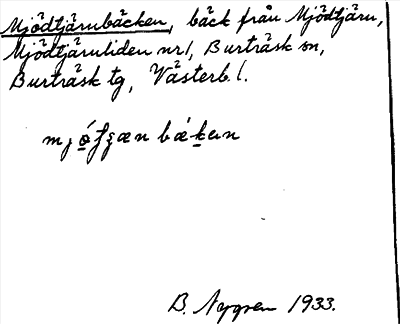 Mjödtjärnbäcken, bäck från Mjödtjärn,
Mjödtjärnliden nr 1, Burträsk sn,
Burträsk tg, Västerb l.
B. Nygren 1933.